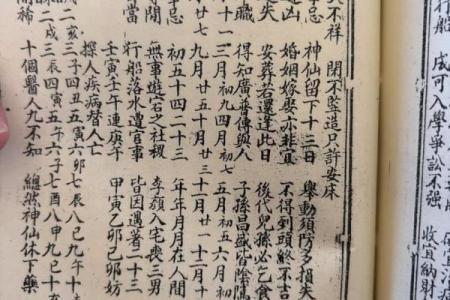 行船 成可入學爭訟不强
收宜納財
不祥 閉不竪造只許安床
忌 神仙留下十三日 舉動須防多損失
凶 婚姻嫁娶亦非宜 不得到頭終不吉
失 安葬若還逢此日 後代兒孫必乞食
職 得知廣善傳與人 子孫昌盛皆陰
十一 三月初九四月初七 五月初五六月初
廿七 九月廿五十月廿三 十一月廿一十二月十
忌 初五十四二十三 年年月月在人間
無事遊玄之社稷 李顏入宅喪三男
行船落水遭官事 皆因遇著二十三
壬寅壬午連庚午 甲寅乙卯己卯妨
探人疾病替人亡
二亥三子四丑五寅六卯七辰八巳九午十
二戌三辰四寅五午六子七酉八申九巳十
十個醫人九不知 總然神仙休下藥